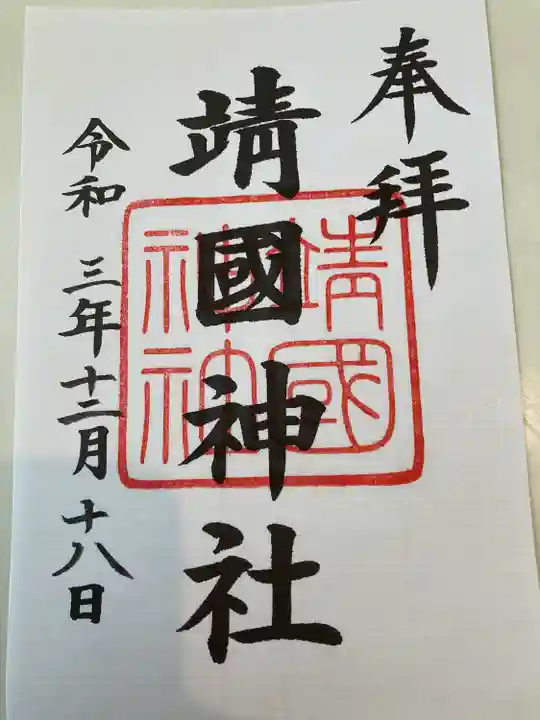 奉拝
靖國神社
靖國
神社
令和 三年十二月十八日